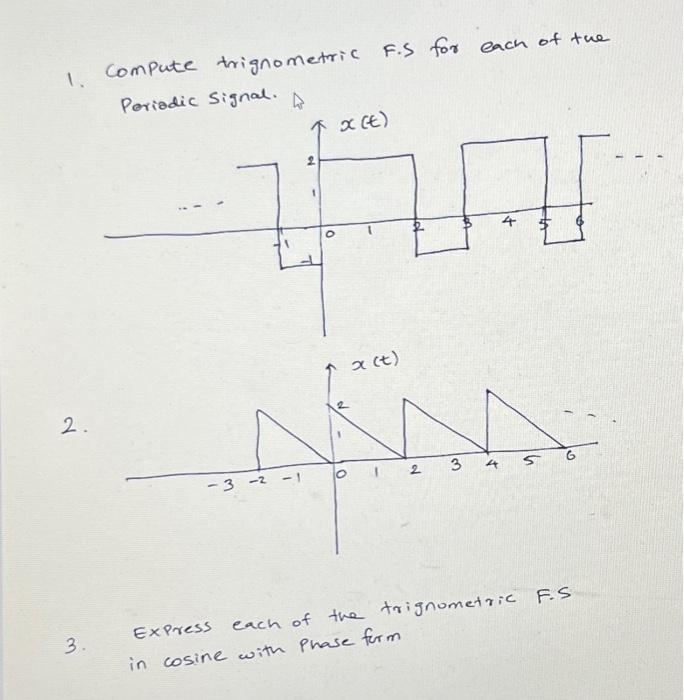 1. Compute trignometric F.S for each of the
Periodic Signal.
x(t)
2
1
-1 0 1 2 3 4 5 6
-1
x(t)
2.
2
1
-3 -2 -1 0 1 2 3 4 5 6
3. Express each of the trignometric F.S
in cosine with Phase form